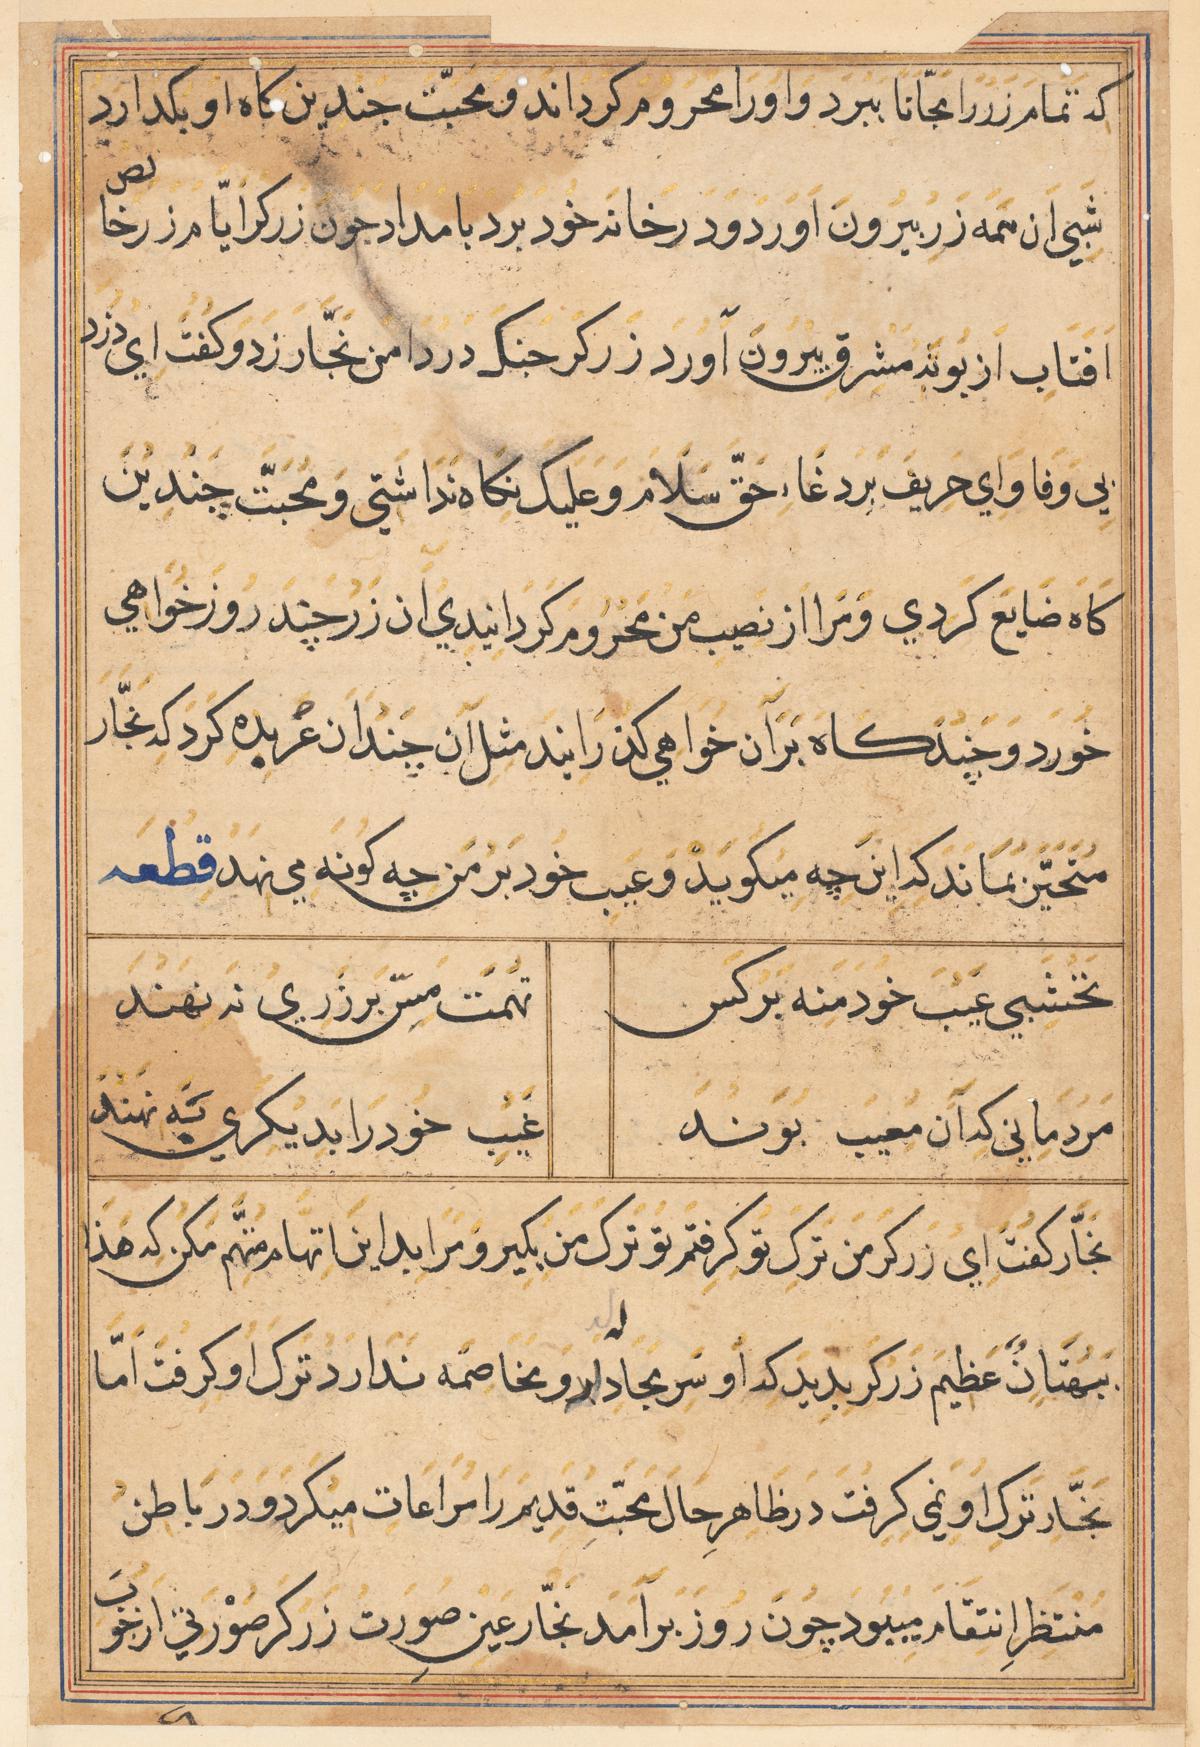 که تمام زر را مجّانا ببرد و او را محروم کرداند و محبّت جندین کاه او بکدارد
شبی ان همه زر بیرون اورد و در خانه خود برد بامداد جون زرکر ایّام زر خا
لص
افتاب از بوته مشرق بیرون آورد زرکر جنک در دامن نجّار زد و کفت ای دزد
بی وفا و ای حریف پردغاء حقّ سلام و علیک نکاه نداشتی و محبّت چندین
کاه ضایع کردی و مرا از نصیب من محروم کردانیدی ان زر چند روز خواهی
خورد و چند کاه بر آن خواهی کذرانید مثل آن چندان عربده کرد که نجّار
متحیّر بماند که این چه میکوید و عیب خود بر من چه کونه می نهد قطعه
نخشبی عیب خود منه بر کس
تهمت مسّ بر زری نه نهند
مردمانی که آن معیب بوند
عیب خود را بدیکری نه نهند
نجّار کفت ای زرکر من ترک تو کرفتم تو ترک من بکیر و مرا بدا این اتهام متهّم مکن که هذا
بهتانٌ عظیم زرکر بدید که او سر مجادله و مخاصمه ندارد ترک او کرفت امّا
نجّار ترک او نمی کرفت در ظاهر حال محبّتِ قدیم را مراعات میکرد و در باطن
منتظرِ انتقام میبود چون روز برآمد نجّار عین صورتِ زرکر صورتی از خوب